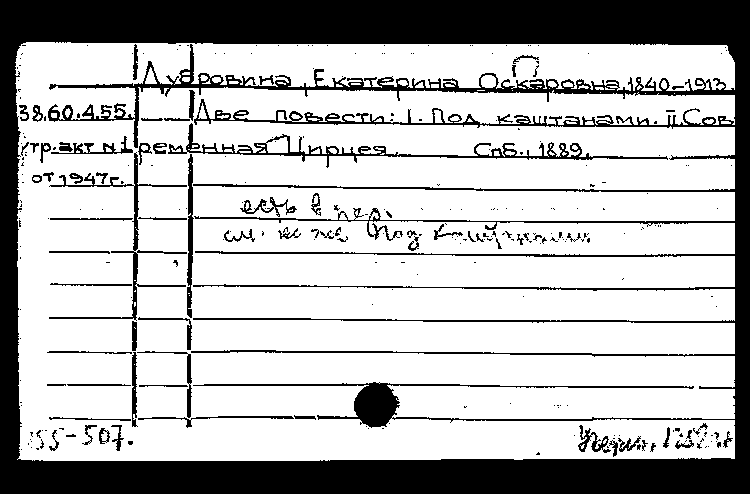 Дубровина, Екатерина Оскаровна, 1840-1913.
38.60.4.55. Две повести: I. Под каштанами. II. Сов
тр.акт №1 ременная Цирцея. Спб., 1889.
от 1947г.
есть в пер.
см. ее же Под каштанами
55-507.